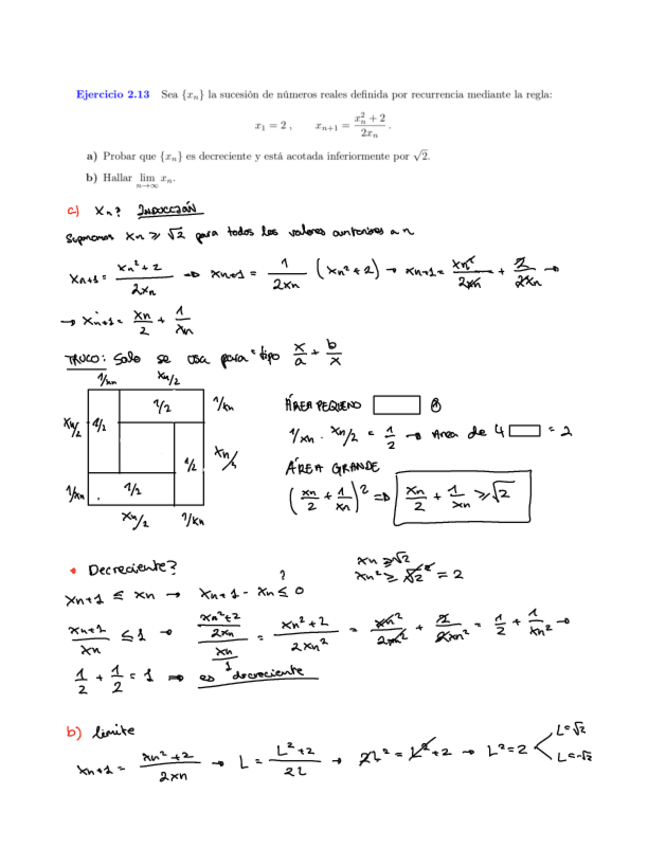 Ejercicio 2.13 Sea {xₙ} la sucesión de números reales definida por recurrencia mediante la regla:
x₁ = 2 , xₙ₊₁ = (xₙ² + 2)/(2xₙ) .
a) Probar que {xₙ} es decreciente y está acotada inferiormente por √2.
b) Hallar lim n→∞ xₙ.
c) Xn? INDUCCIÓN
Suponemos xn ≥ √2 para todos los valores anteriores a n
Xn+1 = (xn²+2)/(2xn) → xn+1 = 1/(2xn) (xn²+2) → xn+1 = xn²/(2xn) + 2/(2xn) →
→ xn+1 = xn/2 + 1/xn
TRUCO: Solo se usa para tipo x/a + b/x
1/xn xn/2
xn/2 1/2 1/2 1/xn
1/2 xn/2
1/xn 1/2
xn/2 1/xn
ÁREA PEQUEÑO
1/xn · xn/2 = 1/2 → Area de 4 = 2
ÁREA GRANDE
(xn/2 + 1/xn)² ⇒ xn/2 + 1/xn ≥ √2
• Decreciente?
xn ≥ √2
xn² ≥ √2² = 2
?
xn+1 ≤ xn → xn+1 - xn ≤ 0
xn+1/xn ≤ 1 → ((xn²+2)/(2xn))/(xn/1) = (xn²+2)/(2xn²) = xn²/(2xn²) + 2/(2xn²) = 1/2 + 1/xn² →
1/2 + 1/2 = 1 ⇒ es decreciente
b) limite
xn+1 = (xn²+2)/(2xn) → L = (L²+2)/(2L) → 2L² = L²+2 → L² = 2 L=√2
L=-√2